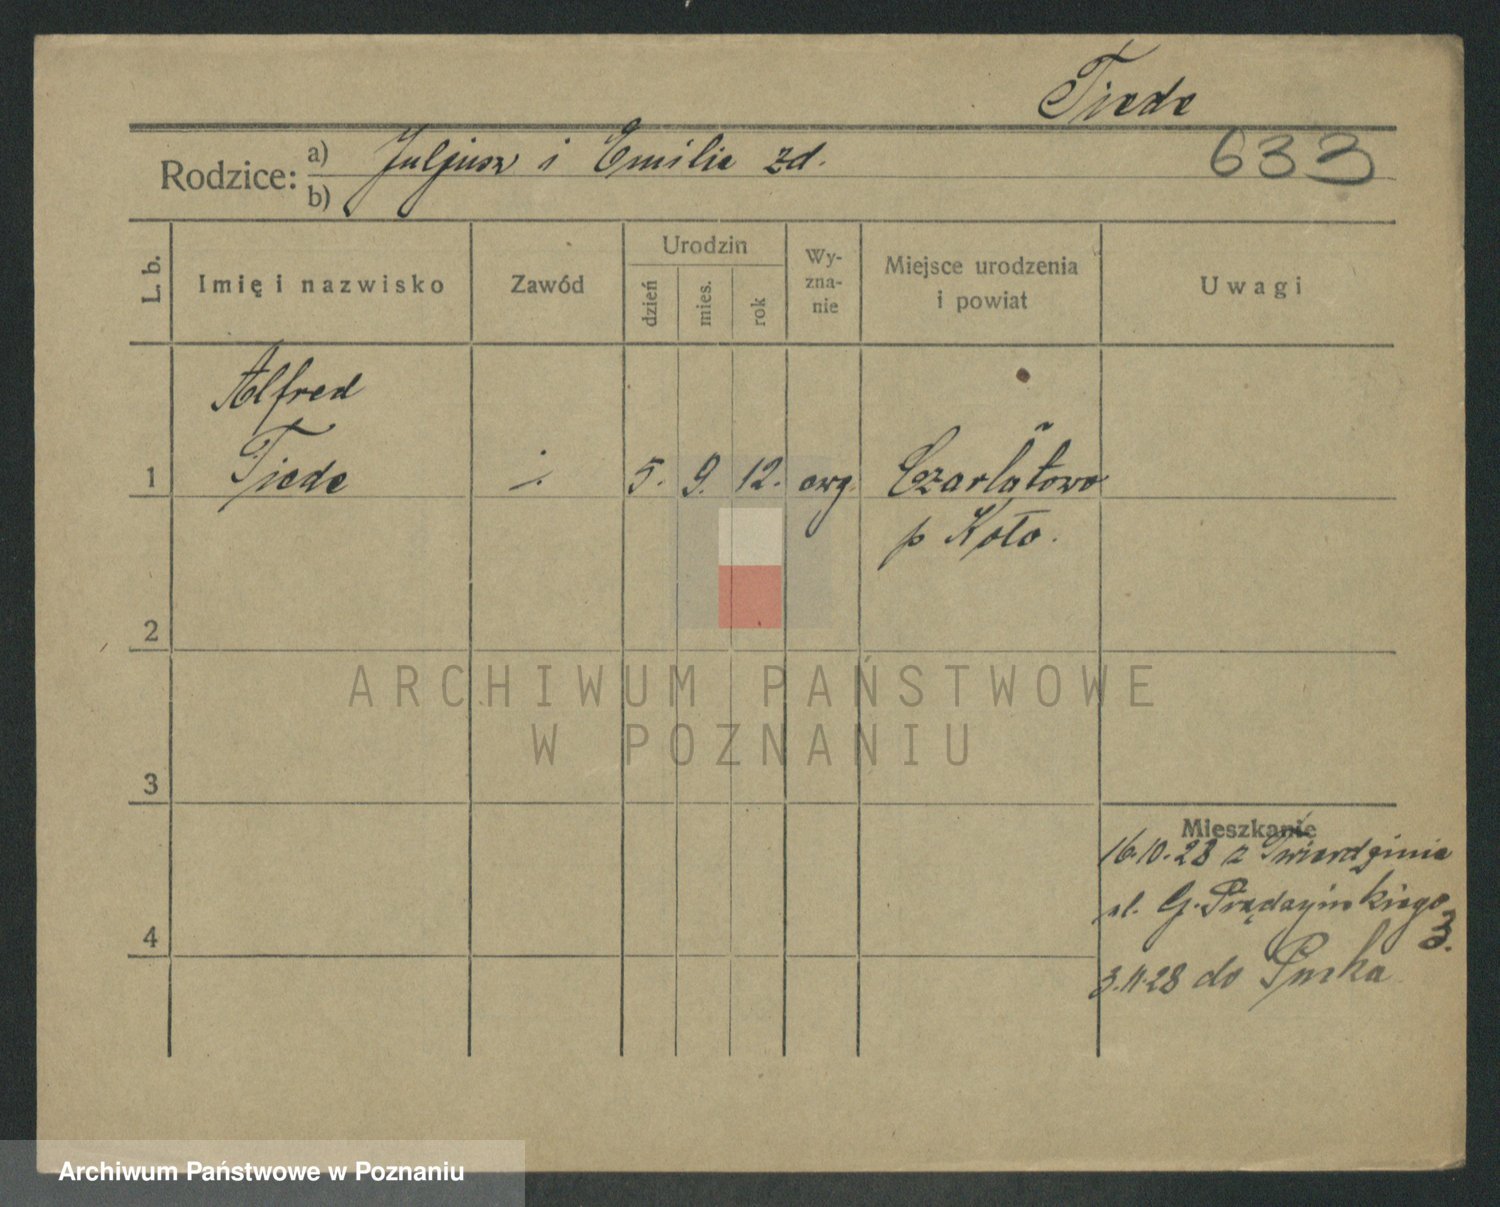 Tiede
Rodzice: a) Juljusz i Emilie zd. 633
b)
L. b. Imię i nazwisko Zawód Urodzin dzień mies. rok Wy-zna-nie Miejsce urodzenia i powiat Uwagi
Alfred
1 Tiede 5. 9. 12. ewg. Czarłatowo
p Koło.
2
ARCHIWUM PAŃSTWOWE
W POZNANIU
3
Mieszkanie
16.10.28 z Twierdzinia
ul. G. Prądzyńskiego 3.
4
3.11.28 do
Archiwum Państwowe w Poznaniu